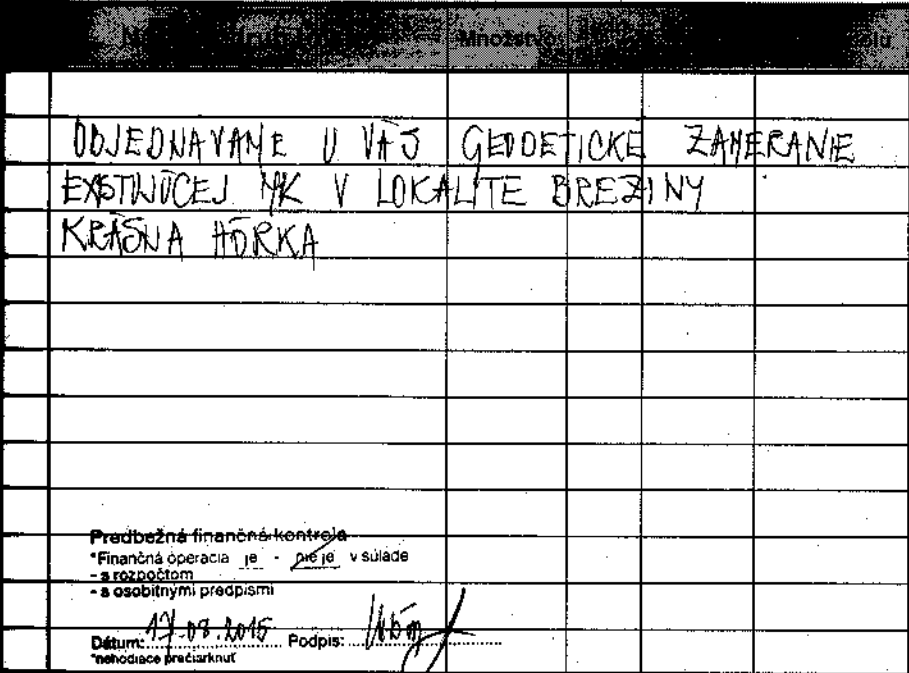 Množstvo
OBJEDNAVAME U VÁS GEODETICKÉ ZAMERANIE
EXISTUJÚCEJ MK V LOKALITE BREZINY
KRÁSNA HÔRKA
Predbežná finančná kontrola
*Finančná operacia je - nie je v súlade
- s rozpočtom
- s osobitnými predpismi
Dátum: 17.08.2015 Podpis:
*nehodiace prečiarknuť